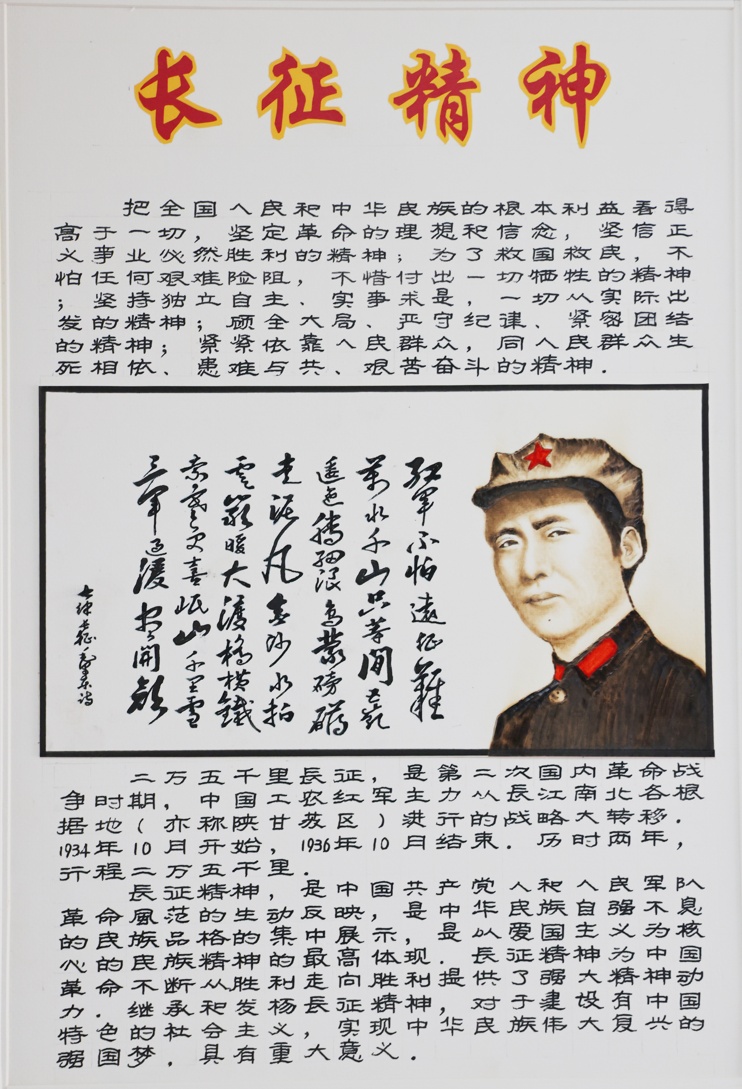 长征精神
把全国人民和中华民族的根本利益看得
高于一切，坚定革命的理想和信念，坚信正
义事业必然胜利的精神；为了救国救民，不
怕任何艰难险阻，不惜付出一切牺牲的精神
；坚持独立自主、实事求是，一切从实际出
发的精神；顾全大局、严守纪律、紧密团结
的精神；紧紧依靠人民群众，同人民群众生
死相依、患难与共、艰苦奋斗的精神．
红軍不怕遠征難
萬水千山只等閒五嶺
逶迤腾细浪烏蒙磅礴
走泥丸金沙水拍
雲崖暖大渡橋横鐵
索寒更喜岷山千里雪
三軍過後盡開颜
七律长征毛泽东诗
二万五千里長征，是第二次国内革命战
争时期，中国工农红军主力从長江南北各根
据地(亦称陕甘苏区)进行的战略大转移．
1934年10月开始，1936年10月结束．历时两年，
行程二万五千里．
長征精神，是中国共产党人和人民军队
革命風范的生动反映，是中华民族自强不息
的民族品格的集中展示，是以爱国主义为核
心的民族精神的最高体现．長征精神为中国
革命不断从胜利走向胜利提供了强大精神动
力．继承和发扬長征精神，对于建设有中国
特色的社会主义，实现中华民族伟大复兴的
强国梦，具有重大意义．